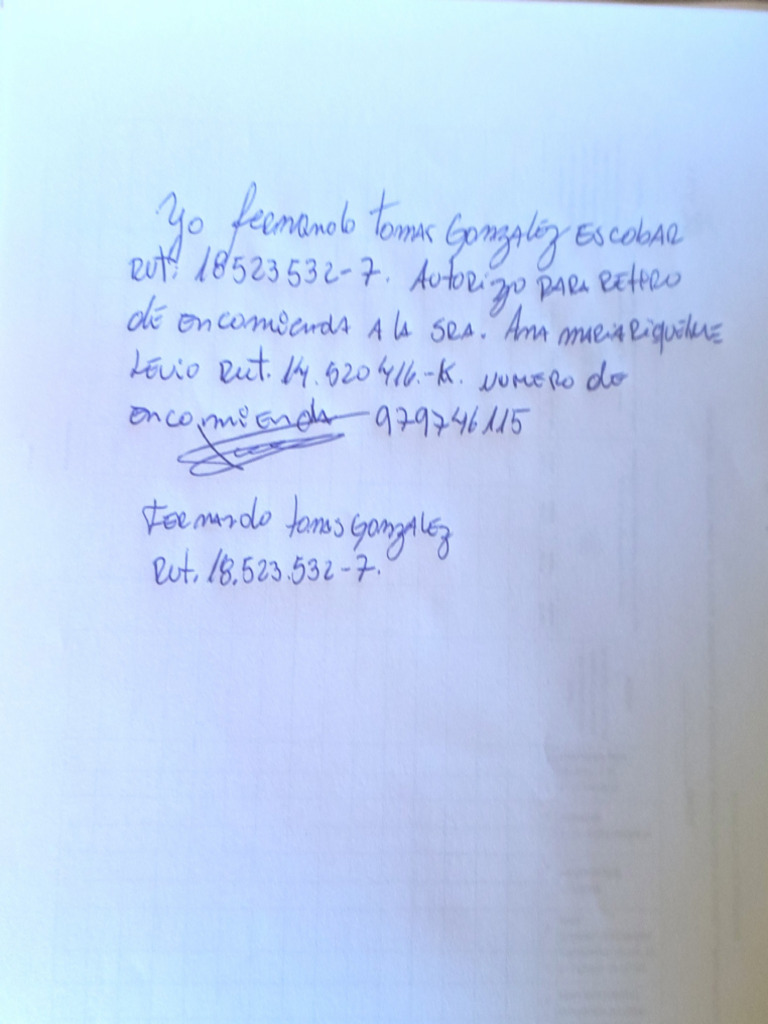 Yo fernando tomas Gonzaléz ESCOBAR
Rut: 18523532-7. Autorizo PARA RETIRO
de encomienda A la SRA. Ana MARIA Riquelme
Levio Rut. 14.520416.-K. NUMERO de
encomienda 979746115
FERNANDO tomas GONZALEZ
Rut. 18.523.532-7.